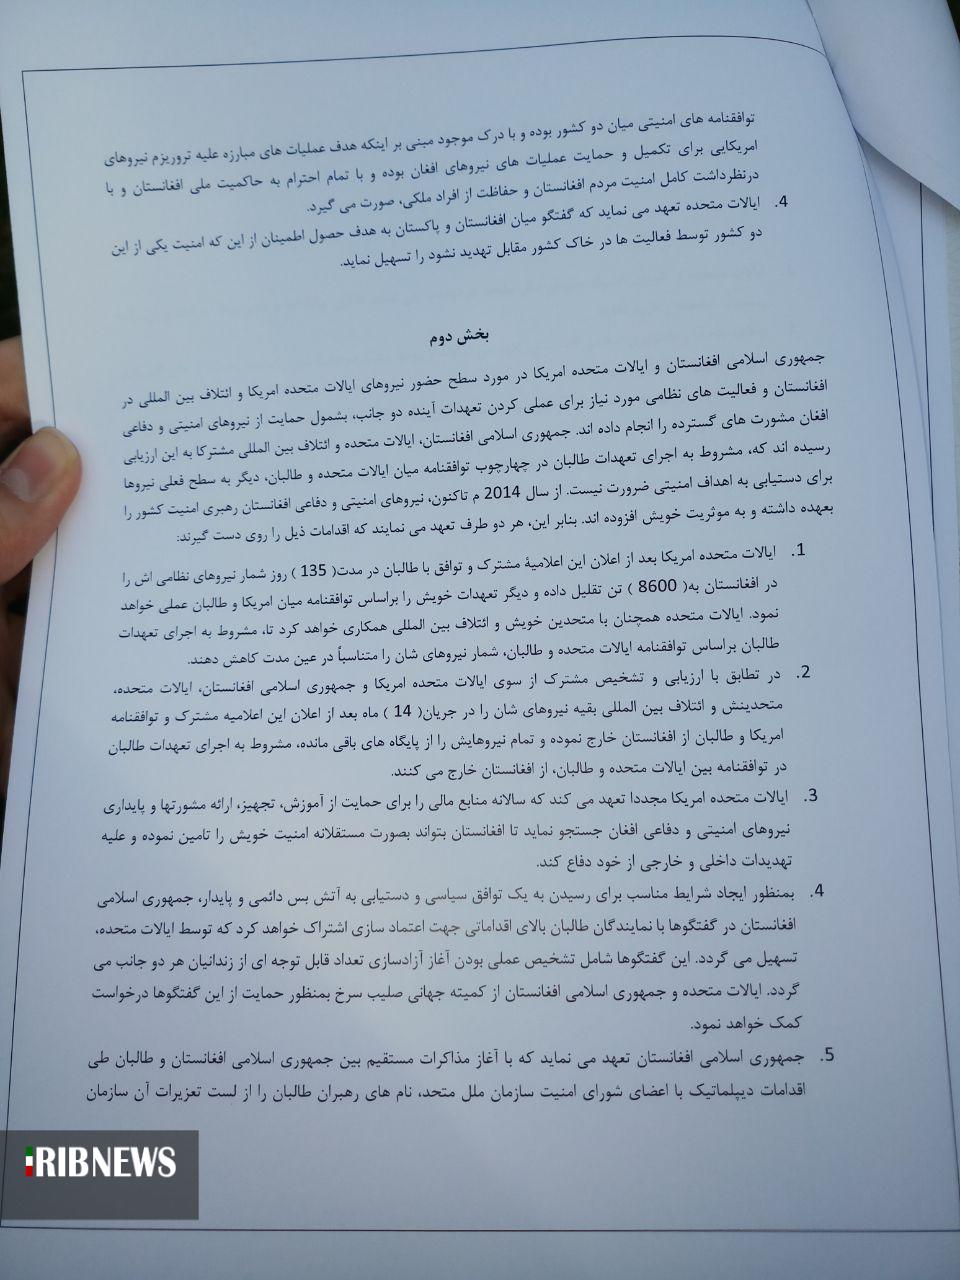 توافقنامه های امنیتی میان دو کشور بوده و با درک موجود مبنی بر اینکه هدف عملیات های مبارزه علیه تروریزم نیروهای
امریکایی برای تکمیل و حمایت عملیات های نیروهای افغان بوده و با تمام احترام به حاکمیت ملی افغانستان و با
درنظرداشت کامل امنیت مردم افغانستان و حفاظت از افراد ملکی، صورت می گیرد.
4. ایالات متحده تعهد می نماید که گفتگو میان افغانستان و پاکستان به هدف حصول اطمینان از این که امنیت یکی از این
دو کشور توسط فعالیت ها در خاک کشور مقابل تهدید نشود را تسهیل نماید.
بخش دوم
جمهوری اسلامی افغانستان و ایالات متحده امریکا در مورد سطح حضور نیروهای ایالات متحده امریکا و ائتلاف بین المللی در
افغانستان و فعالیت های نظامی مورد نیاز برای عملی کردن تعهدات آینده دو جانب، بشمول حمایت از نیروهای امنیتی و دفاعی
افغان مشورت های گسترده را انجام داده اند. جمهوری اسلامی افغانستان، ایالات متحده و ائتلاف بین المللی مشترکا به این ارزیابی
رسیده اند که، مشروط به اجرای تعهدات طالبان در چهارچوب توافقنامه میان ایالات متحده و طالبان، دیگر به سطح فعلی نیروها
برای دستیابی به اهداف امنیتی ضرورت نیست. از سال 2014 م تاکنون، نیروهای امنیتی و دفاعی افغانستان رهبری امنیت کشور را
بعهده داشته و به موثریت خویش افزوده اند. بنابر این، هر دو طرف تعهد می نمایند که اقدامات ذیل را روی دست گیرند:
1. ایالات متحده امریکا بعد از اعلان این اعلامیۀ مشترک و توافق با طالبان در مدت( 135 ) روز شمار نیروهای نظامی اش را
در افغانستان به( 8600 ) تن تقلیل داده و دیگر تعهدات خویش را براساس توافقنامه میان امریکا و طالبان عملی خواهد
نمود. ایالات متحده همچنان با متحدین خویش و ائتلاف بین المللی همکاری خواهد کرد تا، مشروط به اجرای تعهدات
طالبان براساس توافقنامه ایالات متحده و طالبان، شمار نیروهای شان را متناسباً در عین مدت کاهش دهند.
2. در تطابق با ارزیابی و تشخیص مشترک از سوی ایالات متحده امریکا و جمهوری اسلامی افغانستان، ایالات متحده،
متحدینش و ائتلاف بین المللی بقیه نیروهای شان را در جریان( 14 ) ماه بعد از اعلان این اعلامیه مشترک و توافقنامه
امریکا و طالبان از افغانستان خارج نموده و تمام نیروهایش را از پایگاه های باقی مانده، مشروط به اجرای تعهدات طالبان
در توافقنامه بین ایالات متحده و طالبان، از افغانستان خارج می کنند.
3. ایالات متحده امریکا مجددا تعهد می کند که سالانه منابع مالی را برای حمایت از آموزش، تجهیز، ارائه مشورتها و پایداری
نیروهای امنیتی و دفاعی افغان جستجو نماید تا افغانستان بتواند بصورت مستقلانه امنیت خویش را تامین نموده و علیه
تهدیدات داخلی و خارجی از خود دفاع کند.
4. بمنظور ایجاد شرایط مناسب برای رسیدن به یک توافق سیاسی و دستیابی به آتش بس دائمی و پایدار، جمهوری اسلامی
افغانستان در گفتگوها با نمایندگان طالبان بالای اقداماتی جهت اعتماد سازی اشتراک خواهد کرد که توسط ایالات متحده،
تسهیل می گردد. این گفتگوها شامل تشخیص عملی بودن آغاز آزادسازی تعداد قابل توجه ای از زندانیان هر دو جانب می
گردد. ایالات متحده و جمهوری اسلامی افغانستان از کمیته جهانی صلیب سرخ بمنظور حمایت از این گفتگوها درخواست
کمک خواهد نمود.
5. جمهوری اسلامی افغانستان تعهد می نماید که با آغاز مذاکرات مستقیم بین جمهوری اسلامی افغانستان و طالبان طی
اقدامات دیپلماتیک با اعضای شورای امنیت سازمان ملل متحد، نام های رهبران طالبان را از لست تعزیرات آن سازمان
IRIBNEWS